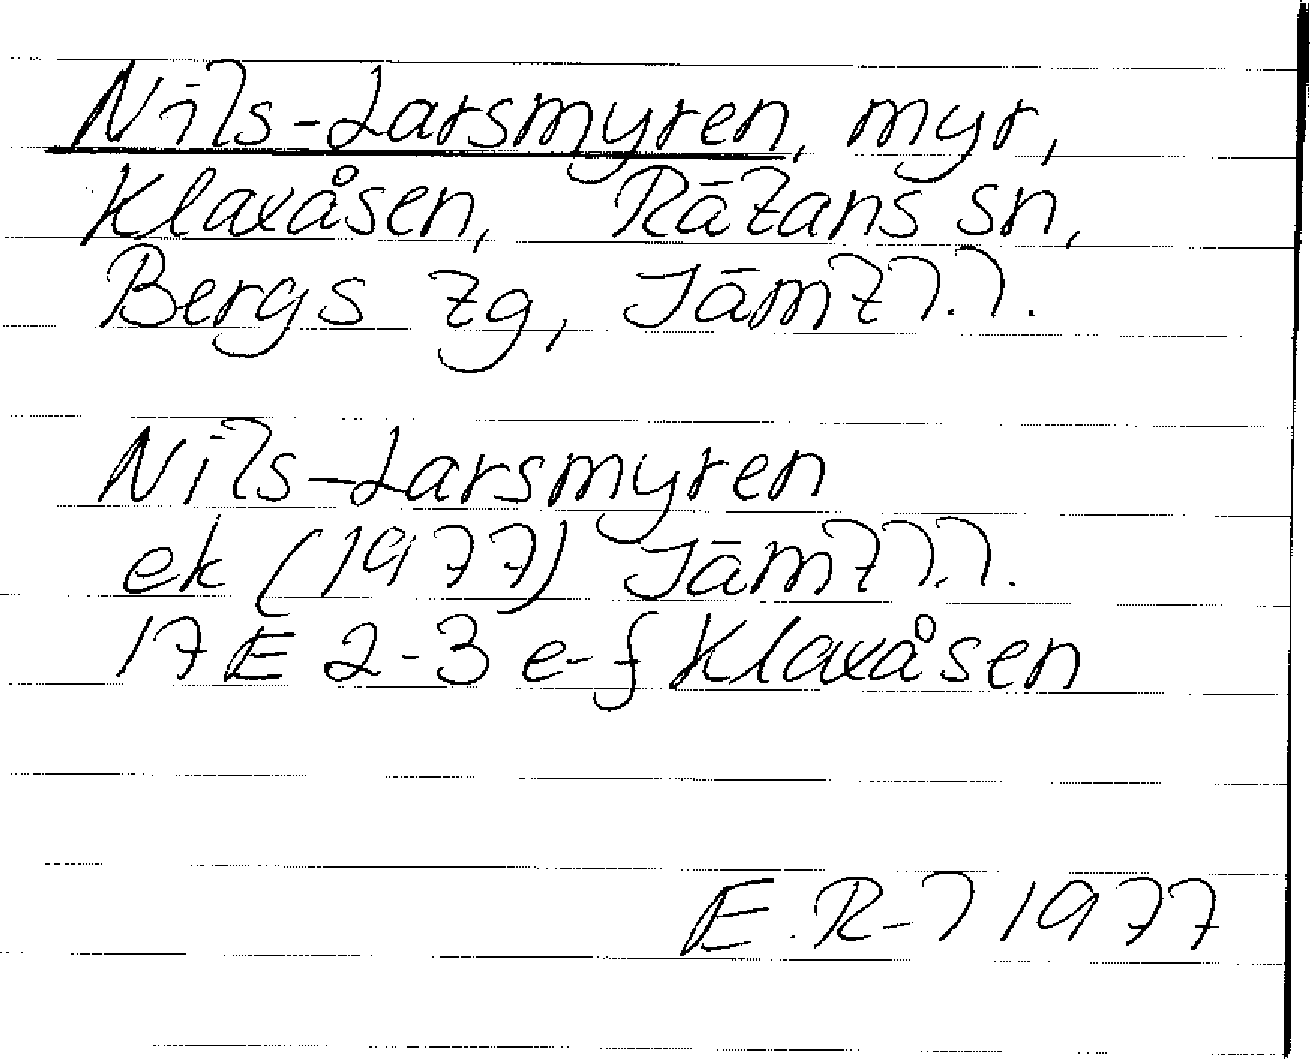 Nils-Larsmyren, myr,
Klaxåsen, Rätans sn,
Bergs tg, Jämtl.l.
Nils-Larsmyren
ek (1977) Jämtl.l.
17E 2-3 e-f Klaxåsen
E.R-l 1977